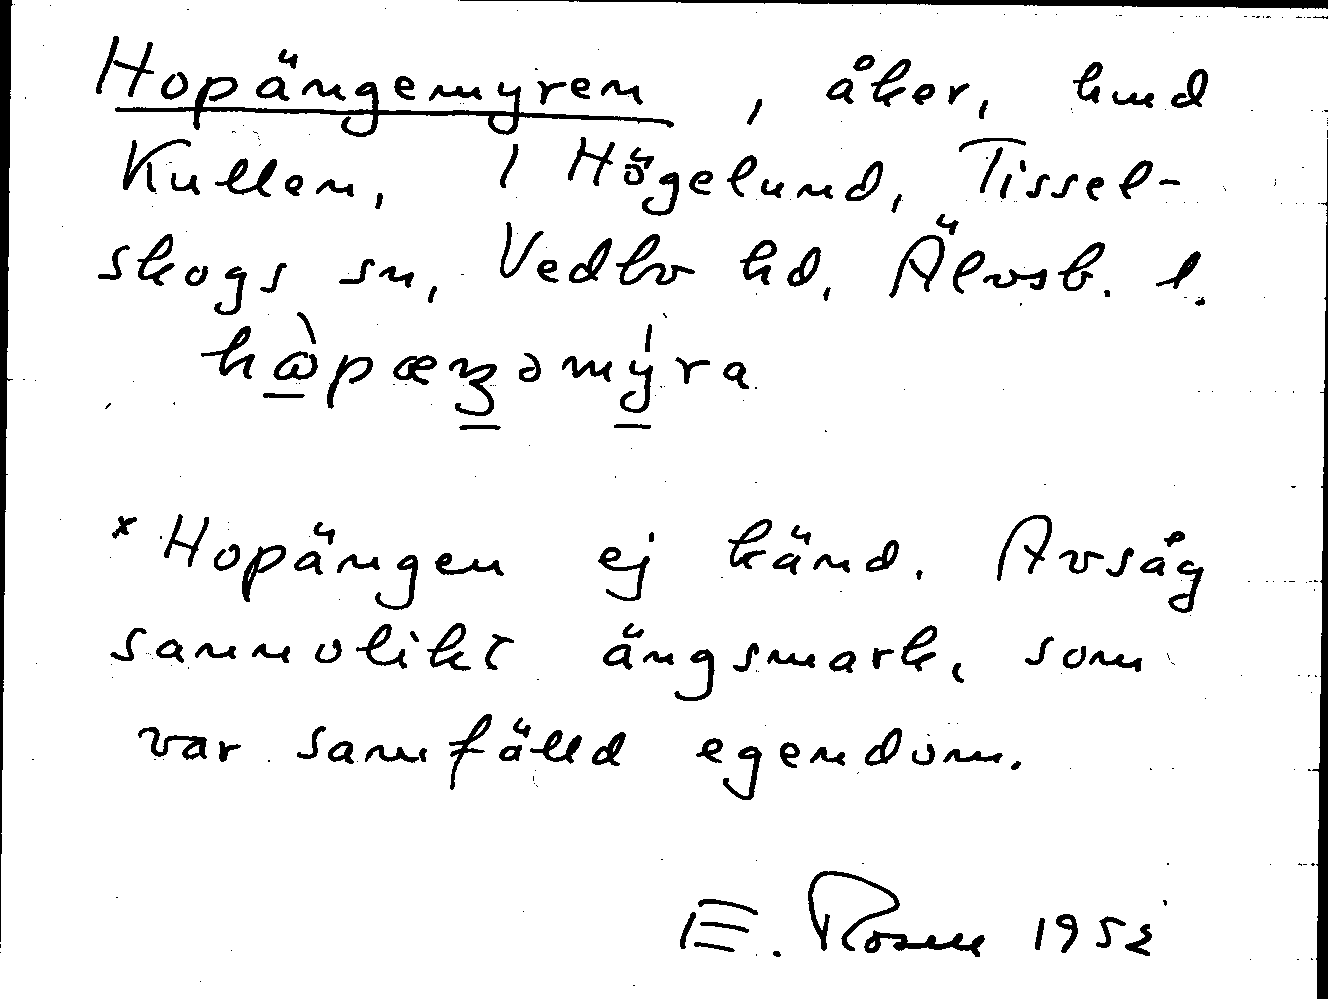 Hopängemyren, åker, hmd
Kullen, 1 Högelund, Tissel-
skogs sn, Vedbo hd, Älvsb. l.
hὼpæȝəmýra
*Hopängen ej känd. Avsåg
sannolikt ängsmark, som
var samfälld egendom.
E. Rosen 1952